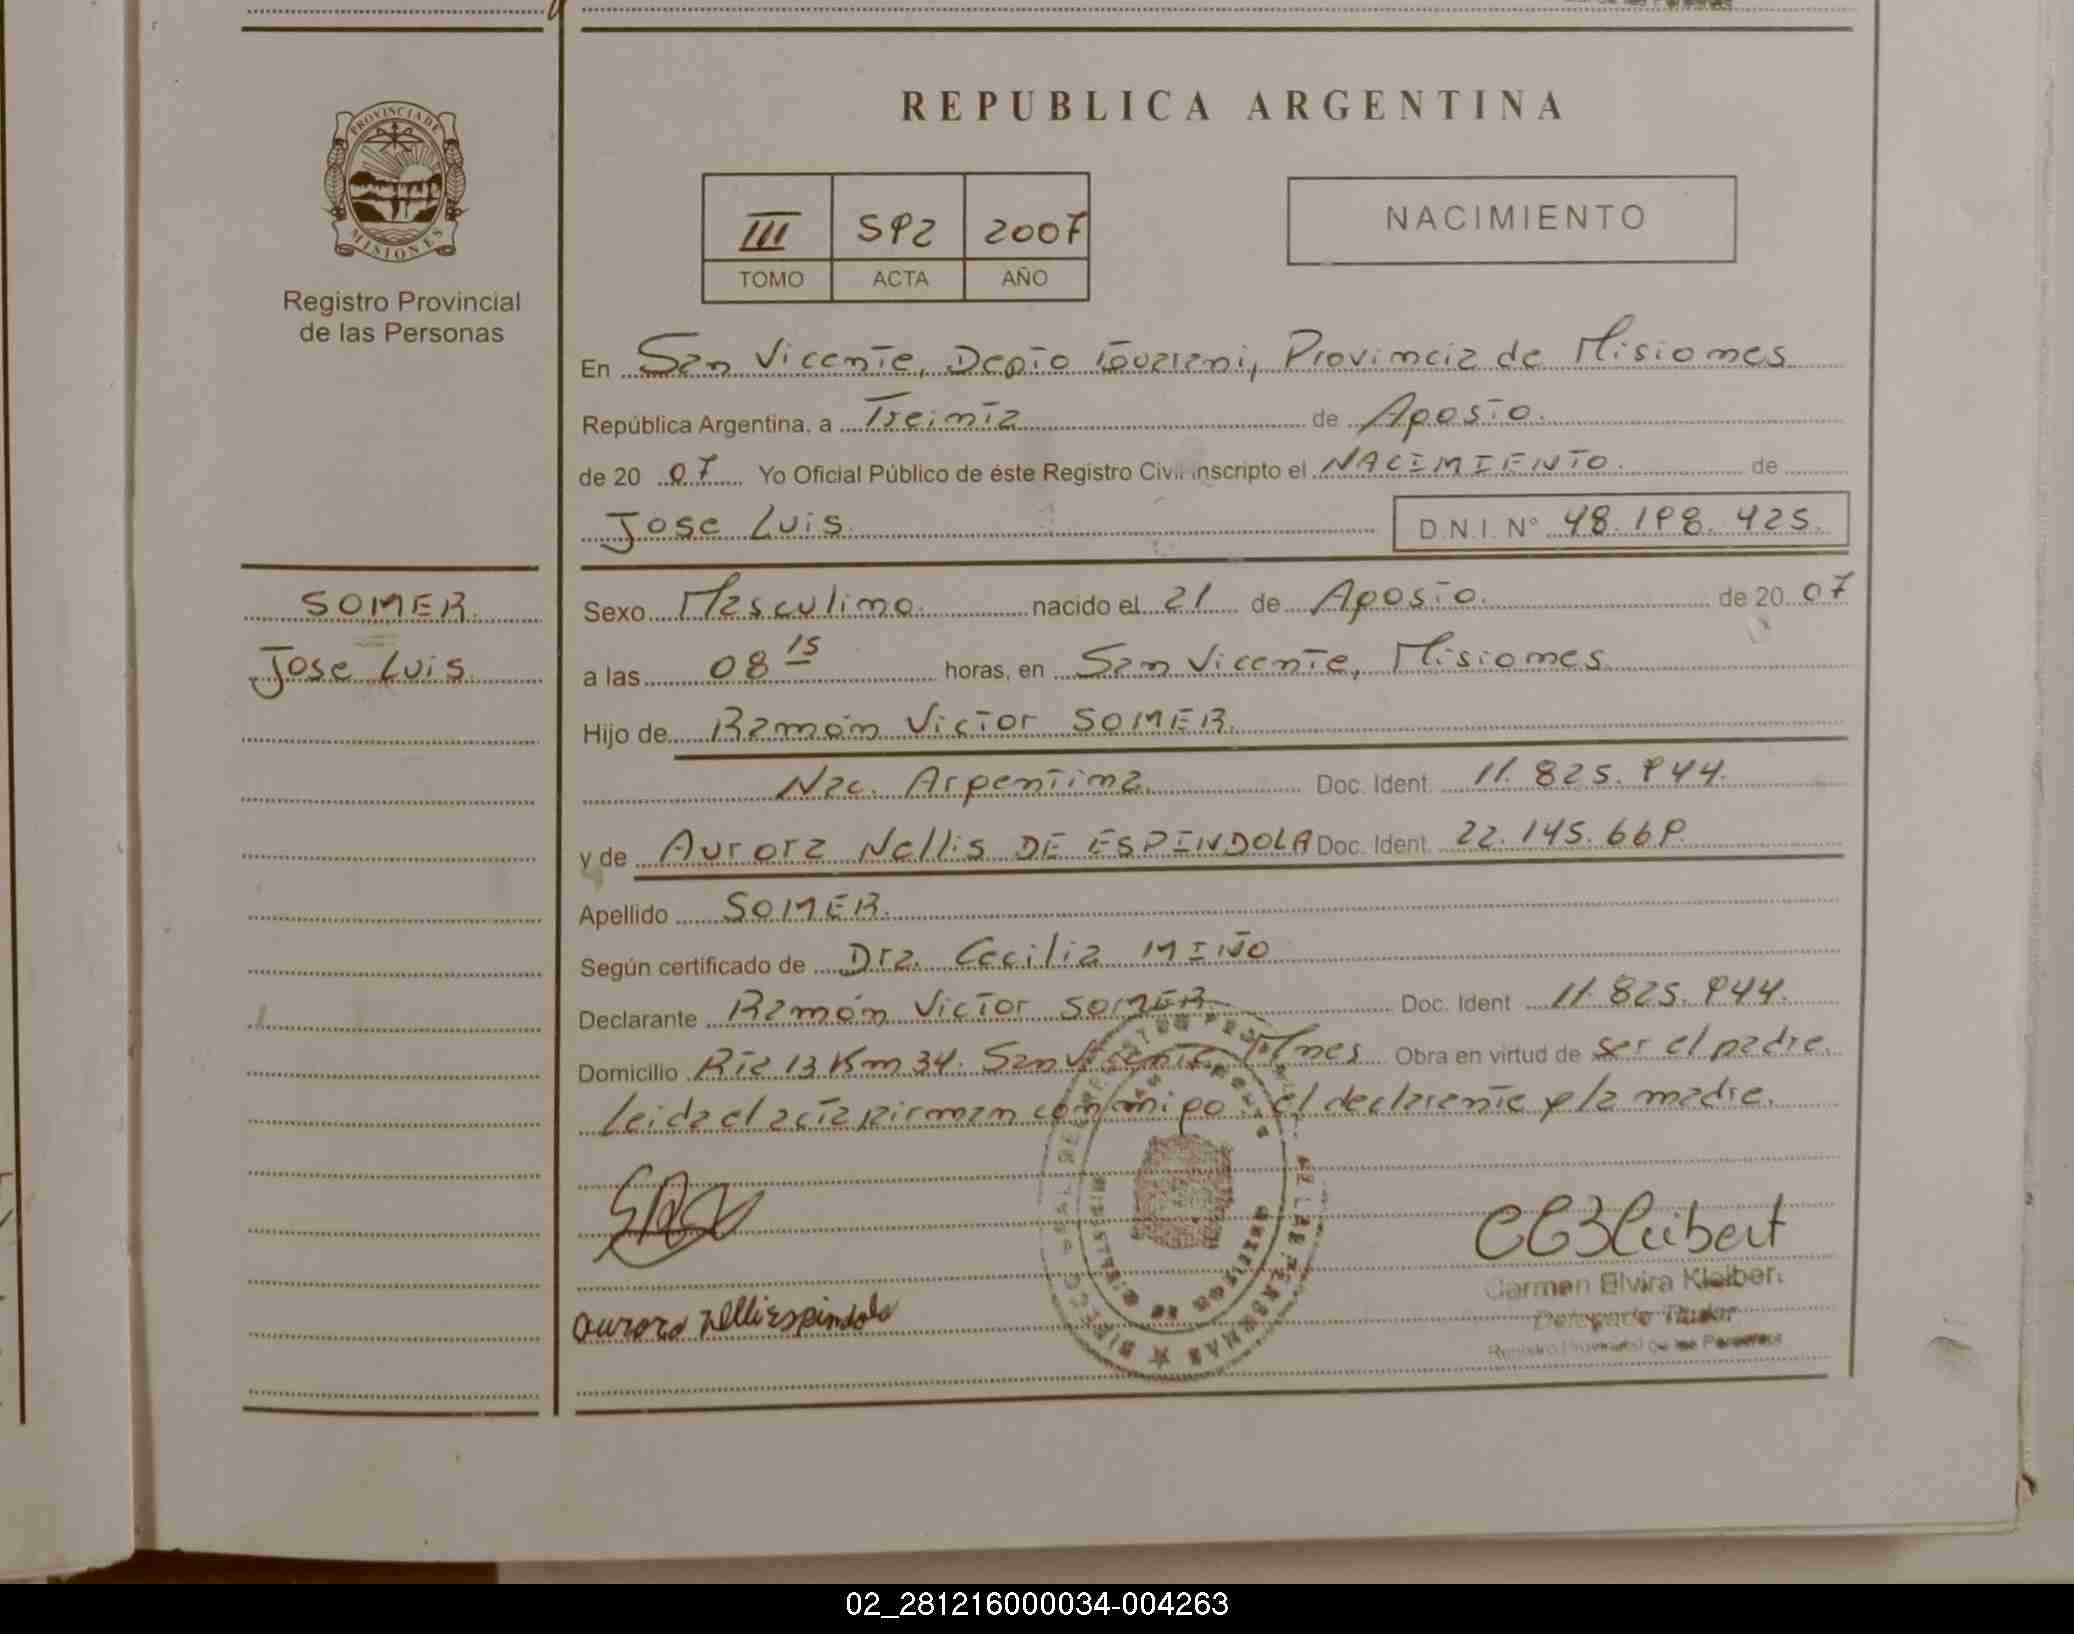 REPUBLICA ARGENTINA
PROVINCIA DE MISIONES
Registro Provincial
de las Personas
III 592 2007
TOMO ACTA AÑO
NACIMIENTO
En San Vicente, Depto Guarani, Provincia de Misiones
República Argentina, a Treinta de Agosto.
de 20 07 Yo Oficial Público de éste Registro Civil inscripto el NACIMIENTO. de
Jose Luis. D.N.I. N° 48.198.425.
SOMER.
Jose Luis.
Sexo Masculino. nacido el 21 de Agosto. de 20 07
a las 08 15 horas, en San Vicente, Misiones
Hijo de Ramón Victor SOMER.
Nac. Argentina. Doc. Ident. 11.825.944.
y de Aurora Nellis DE ESPINDOLA Doc. Ident. 22.145.669.
Apellido SOMER.
Según certificado de Dra. Cecilia MIÑO
Declarante Ramón Victor SOMER Doc. Ident 11.825.944.
Domicilio Rta 13 Km 34. San Vicente Mnes Obra en virtud de ser el padre.
Leida el acta firman conmigo el declarante y la madre.
CEBKleibert
Carmen Elvira Kleibert
Delegado Titular
Registro Provincial de las Personas
Aurora Nelli Espindola
02_281216000034-004263